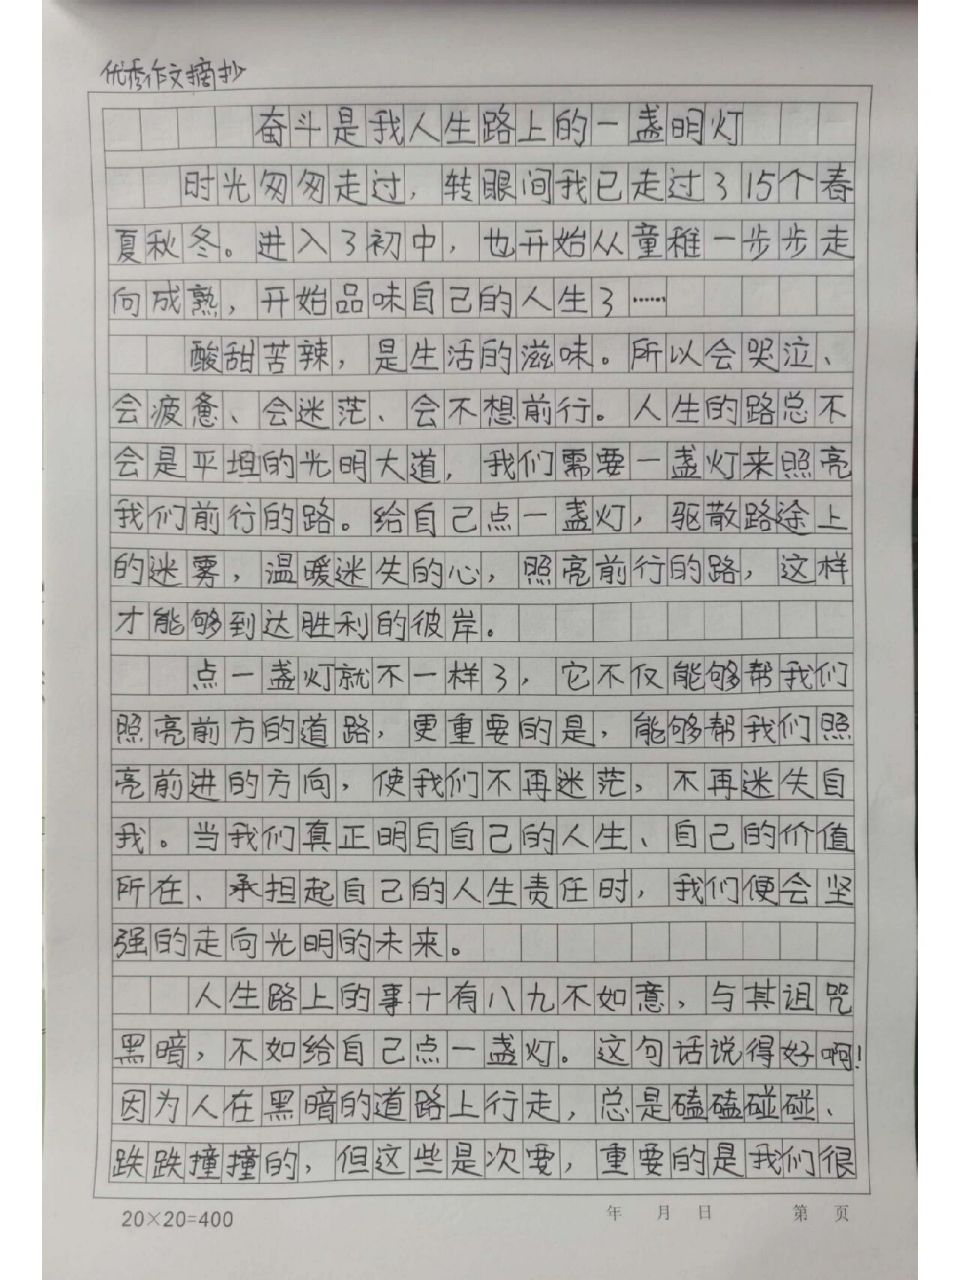 优秀作文摘抄
奋斗是我人生路上的一盏明灯
时光匆匆走过，转眼间我已走过了15个春
夏秋冬。进入了初中，也开始从童稚一步步走
向成熟，开始品味自己的人生了……
酸甜苦辣，是生活的滋味。所以会哭泣、
会疲惫、会迷茫、会不想前行。人生的路总不
会是平坦的光明大道，我们需要一盏灯来照亮
我们前行的路。给自己点一盏灯，驱散路途上
的迷雾，温暖迷失的心，照亮前行的路，这样
才能够到达胜利的彼岸。
点一盏灯就不一样了，它不仅能够帮我们
照亮前方的道路，更重要的是，能够帮我们照
亮前进的方向，使我们不再迷茫，不再迷失自
我。当我们真正明白自己的人生、自己的价值
所在、承担起自己的人生责任时，我们便会坚
强的走向光明的未来。
人生路上的事十有八九不如意，与其诅咒
黑暗，不如给自己点一盏灯。这句话说得好啊！
因为人在黑暗的道路上行走，总是磕磕碰碰、
跌跌撞撞的，但这些是次要，重要的是我们很
20×20=400 年 月 日 第 页